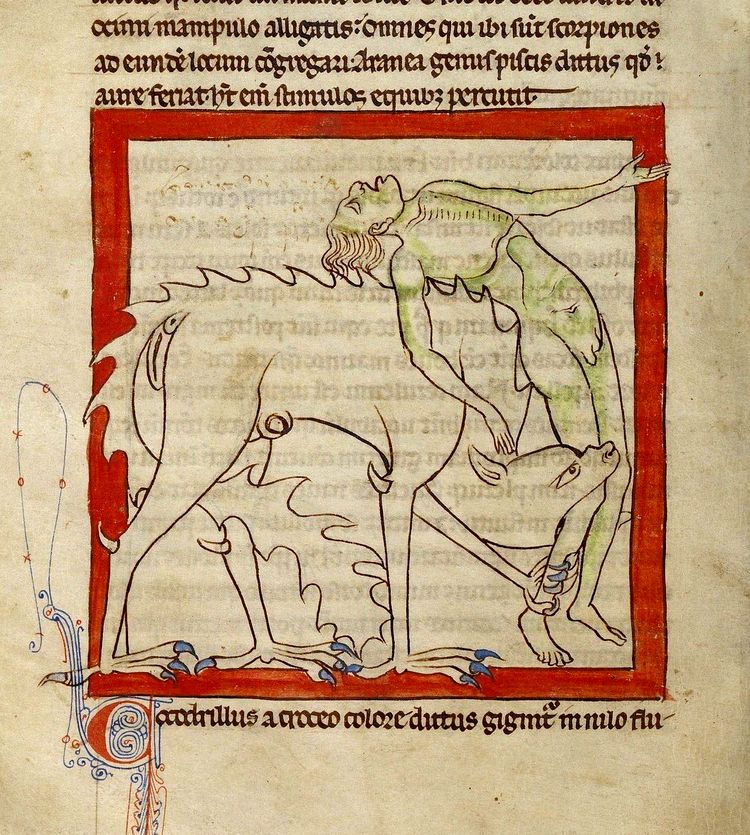 ocimi mampulo alligatis: omnes qui ibi sūt scorpiones
ad eundē locum cōgregari. Aranea genus piscis dictus qđ ı
aure feriat. hr̄ em̄ stimulos equibȝ percutit.
Cocodrillus a croceo colore dictus gignit̄ in nilo flu-